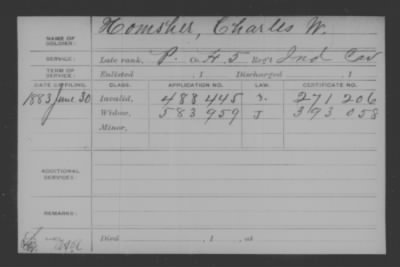 NAME OF SOLDIER: Homsher, Charles W.
SERVICE: Late rank, P. Co. H 5 Reg't Ind Cav
TERM OF SERVICE: Enlisted , 1 Discharged , 1
DATE OF FILING. CLASS. APPLICATION NO. LAW. CERTIFICATE NO.
1883 June 30 Invalid, 488 445 271 206
Widow, 583 959 J 393 058
Minor,
ADDITIONAL SERVICES:
REMARKS:
Died , 1 , at